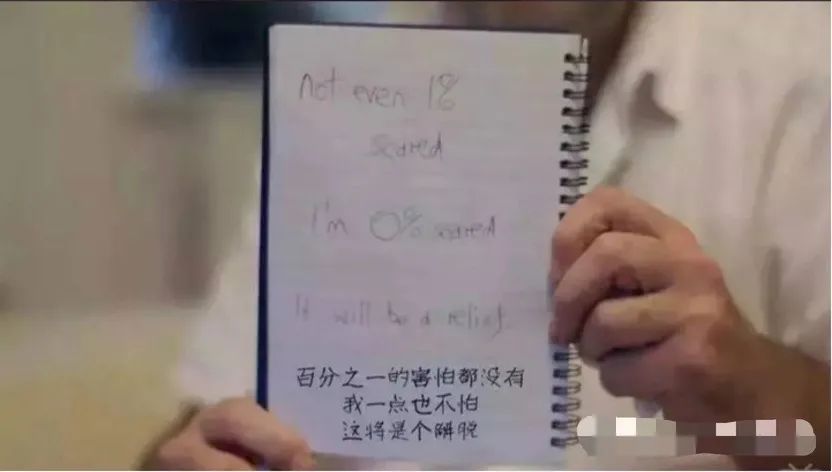 not even 1%
scared
I'm 0% scared
It will be a relief.
百分之一的害怕都没有
我一点也不怕
这将是个解脱